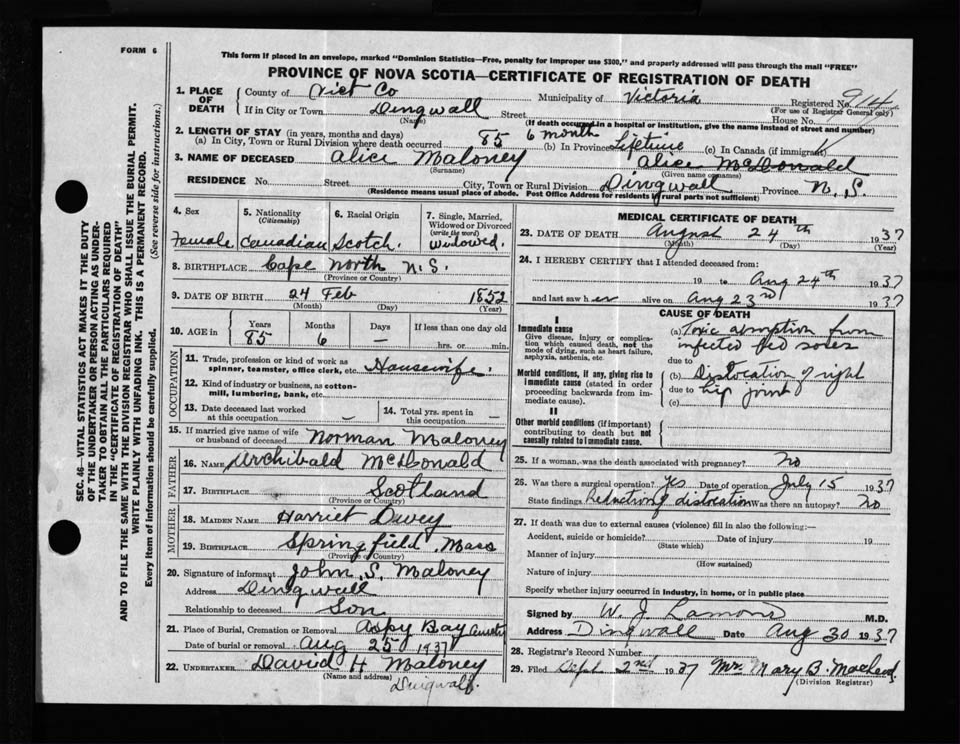 FORM 6
This form if placed in an envelope, marked "Dominion Statistics—Free, penalty for improper use $300," and properly addressed will pass through the mail "FREE"
PROVINCE OF NOVA SCOTIA—CERTIFICATE OF REGISTRATION OF DEATH
1. PLACE OF DEATH
County of Vict Co Municipality of Victoria Registered No. 914
(For use of Registrar General only)
If in City or Town Dingwall Street House No.
(Name) (If death occurred in a hospital or institution, give the name instead of street and number)
2. LENGTH OF STAY (in years, months and days)
(a) In City, Town or Rural Division where death occurred 85 6 month (b) In Province Lifetime (c) In Canada (if immigrant)
3. NAME OF DECEASED Alice Maloney Alice McDonald
(Surname) (Given name or names)
RESIDENCE No. Street City, Town or Rural Division Dingwall Province N. S.
(Residence means usual place of abode. Post Office Address for residents of rural parts not sufficient)
4. Sex 5. Nationality (Citizenship) 6. Racial Origin 7. Single, Married, Widowed or Divorced (write the word)
Female Canadian Scotch. Widowed.
8. BIRTHPLACE Cape North N.S.
(Province or Country)
9. DATE OF BIRTH 24 Feb 1852
(Month) (Day) (Year)
10. AGE in Years Months Days If less than one day old
85 6 — hrs. or min.
OCCUPATION
11. Trade, profession or kind of work as spinner, teamster, office clerk, etc. Housewife.
12. Kind of industry or business, as cotton-mill, lumbering, bank, etc.
13. Date deceased last worked at this occupation — 14. Total yrs. spent in this occupation —
15. If married give name of wife or husband of deceased Norman Maloney
FATHER
16. NAME Archibald McDonald
17. BIRTHPLACE Scotland
(Province or Country)
MOTHER
18. MAIDEN NAME Harriet Divey
19. BIRTHPLACE Springfield Mass
(Province or Country)
20. Signature of informant John S. Maloney
Address Dingwall
Relationship to deceased Son
21. Place of Burial, Cremation or Removal Aspy Bay
Date of burial or removal Aug 25 1937
22. UNDERTAKER David H Maloney
(Name and address)
Dingwall.
MEDICAL CERTIFICATE OF DEATH
23. DATE OF DEATH August 24th 1937
(Month) (Day) (Year)
24. I HEREBY CERTIFY that I attended deceased from:
19 to Aug 24th 1937
and last saw her alive on Aug 23rd 1937
CAUSE OF DEATH
I
Immediate cause
Give disease, injury or complication which caused death, not the mode of dying, such as heart failure, asphyxia, asthenia, etc.
(a) Toxic absorption from
infected bed sores
due to
Morbid conditions, if any, giving rise to immediate cause (stated in order proceeding backwards from immediate cause).
(b) Dislocation of right
due to hip joint
(c)
II
Other morbid conditions (if important) contributing to death but not causally related to immediate cause.
25. If a woman, was the death associated with pregnancy? No
26. Was there a surgical operation? Yes Date of operation July 15 1937
State findings Reduction of dislocation Was there an autopsy? No
27. If death was due to external causes (violence) fill in also the following:—
Accident, suicide or homicide? Date of injury 19
(State which)
Manner of injury
(How sustained)
Nature of injury
Specify whether injury occurred in Industry, in home, or in public place
Signed by W. J. Lamond M.D.
Address Dingwall Date Aug 30 1937
28. Registrar's Record Number
29. Filed Sept 2nd 1937 Mrs Mary B. Macleod.
(Division Registrar)
SEC. 46—VITAL STATISTICS ACT MAKES IT THE DUTY
OF THE UNDERTAKER OR PERSON ACTING AS UNDER-
TAKER TO OBTAIN ALL THE PARTICULARS REQUIRED
IN THE "CERTIFICATE OF REGISTRATION OF DEATH"
AND TO FILE THE SAME WITH THE DIVISION REGISTRAR WHO SHALL ISSUE THE BURIAL PERMIT.
WRITE PLAINLY WITH UNFADING INK. THIS IS A PERMANENT RECORD.
Every item of information should be carefully supplied. (See reverse side for instructions.)